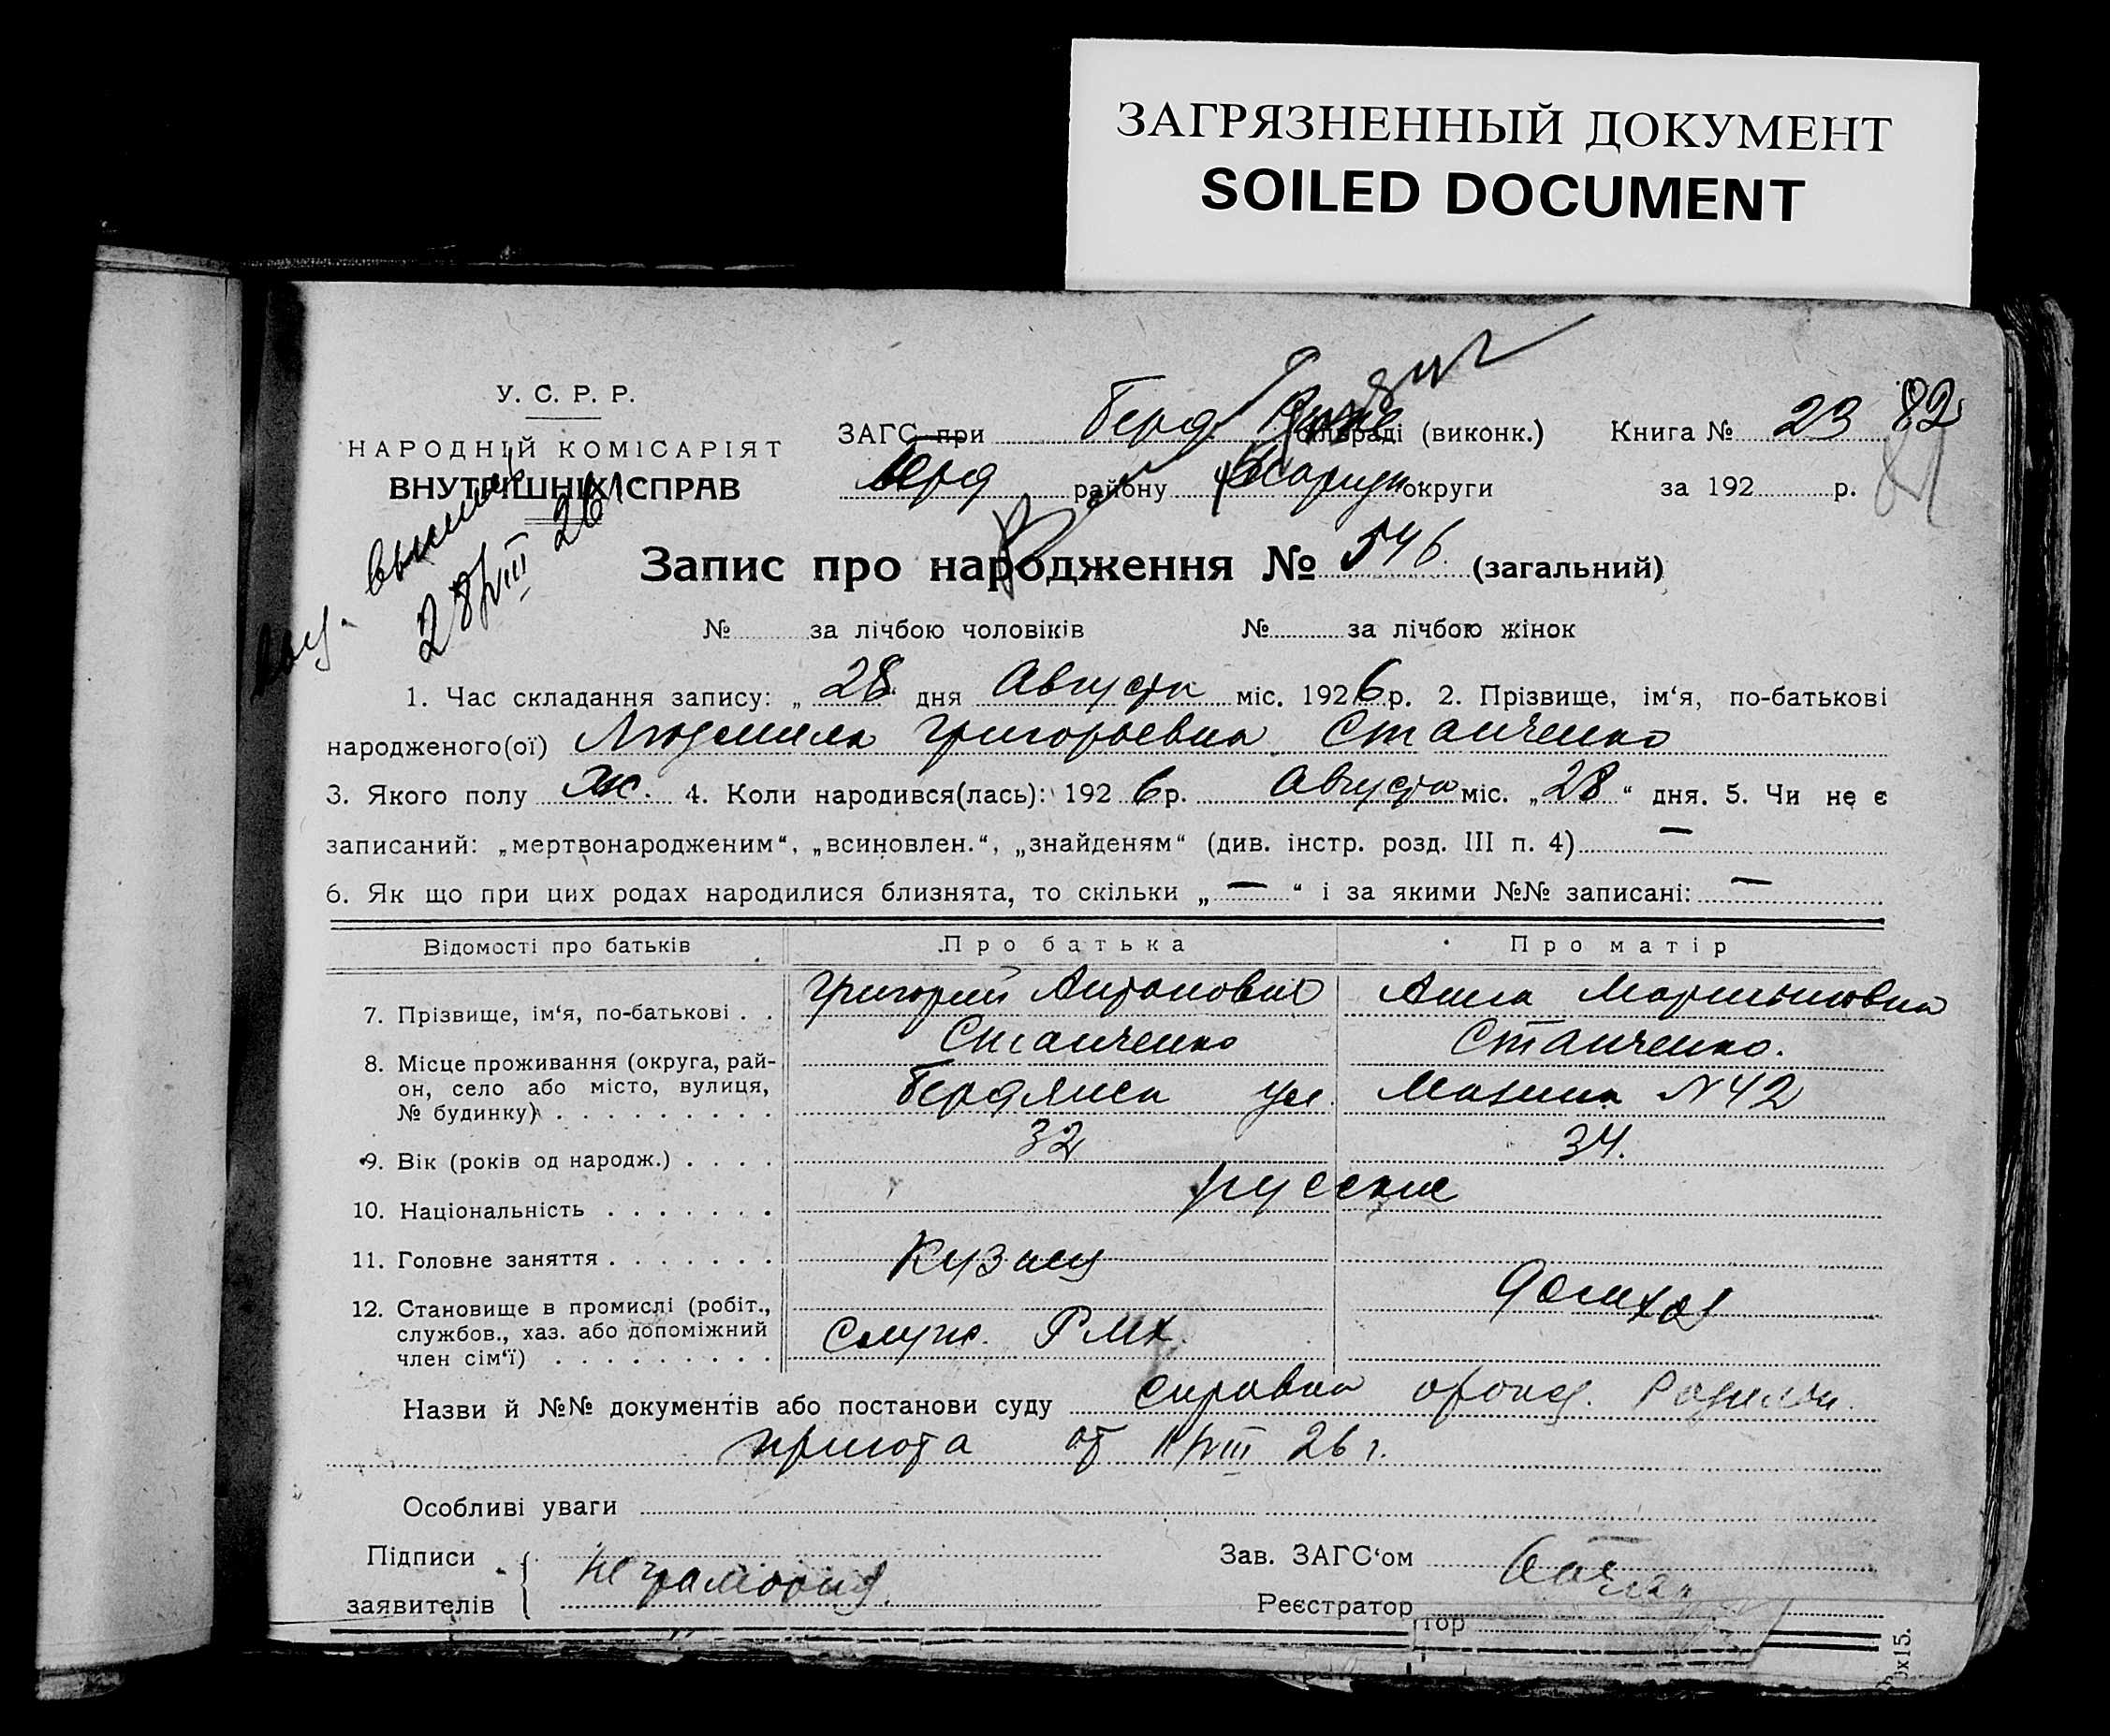 ЗАГРЯЗНЕННЫЙ ДОКУМЕНТ
SOILED DOCUMENT
У. С. Р. Р.
НАРОДНІЙ КОМІСАРІЯТ
ВНУТРІШНІХ СПРАВ
ЗАГС при Берд. (виконк.)
Берд району округи
Книга № 23 82
за 192 р.
28/VIII 26 г.
Запис про народження № 546. (загальний)
№ за лічбою чоловіків № за лічбою жінок
1. Час складання запису: „ 28 дня Августа міс. 1926 р. 2. Прізвище, ім‘я, по-батькові
народженого(ої) Людмила Григорьевна Станченко
3. Якого полу ж. 4. Коли народився(лась): 192 6 р. Августа міс. „ 28 “ дня. 5. Чи не є
записаний: „мертвонародженим“, „всиновлен.“, „знайденям“ (див. інстр. розд. III п. 4) —
6. Як що при цих родах народилися близнята, то скільки „ — “ і за якими №№ записані: —
Відомості про батьків Про батька Про матір
7. Прізвище, ім‘я, по-батькові Григорий Антонович Станченко Анна Мартыновна Станченко.
8. Місце проживання (округа, рай-
он, село або місто, вулиця,
№ будинку) Бердянск ул. Мазина N 42
9. Вік (років од народж.) 32 34.
10. Національність русские
11. Головне заняття Кузнец
12. Становище в промислі (робіт.,
службов., хаз. або допоміжний
член сім‘ї) служ. домхоз
Назви й №№ документів або постанови суду справка
приюта от VIII 26 г.
Особливі уваги
Підписи
заявителів неграмотна.
Зав. ЗАГС‘ом
Реєстратор
тор